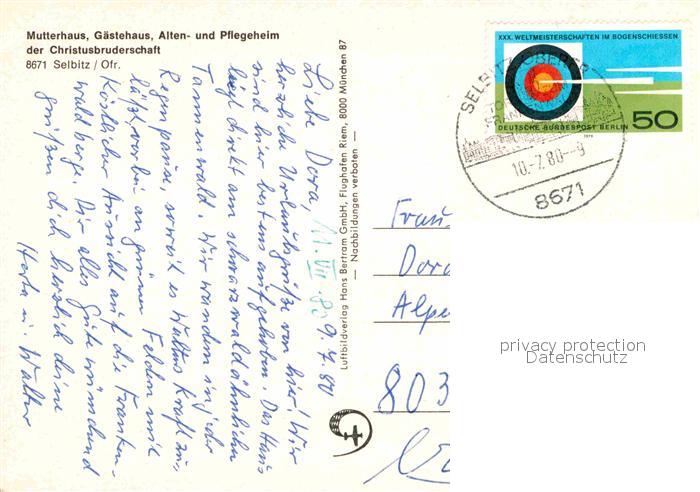 Mutterhaus, Gästehaus, Alten- und Pflegeheim
der Christusbruderschaft
8671 Selbitz / Ofr.
Liebe Dora, 9.7.80
herzliche Urlaubsgrüße von hier! Wir
sind hier bestens aufgehoben. Das Haus
liegt direkt am schwarzwaldähnlichen
Tannenwald. Wir wandern in der
Regenpause, soweit es Walters Kraft zu-
läßt, vorbei an grünen Feldern mit
köstlicher Aussicht auf die Franken-
waldberge. Dir alles Gute wünschend
grüßen dich herzlich deine
Herta u. Walter
11. VII. 80
Luftbildverlag Hans Bertram GmbH, Flughafen Riem, 8000 München 87
— Nachbildungen verboten —
XXX. WELTMEISTERSCHAFTEN IM BOGENSCHIESSEN
DEUTSCHE BUNDESPOST BERLIN 50
1979
SELBITZ, OBERFR
10.-7.80.--9
8671
Frau
Dora
Alpe
803
privacy protection
Datenschutz